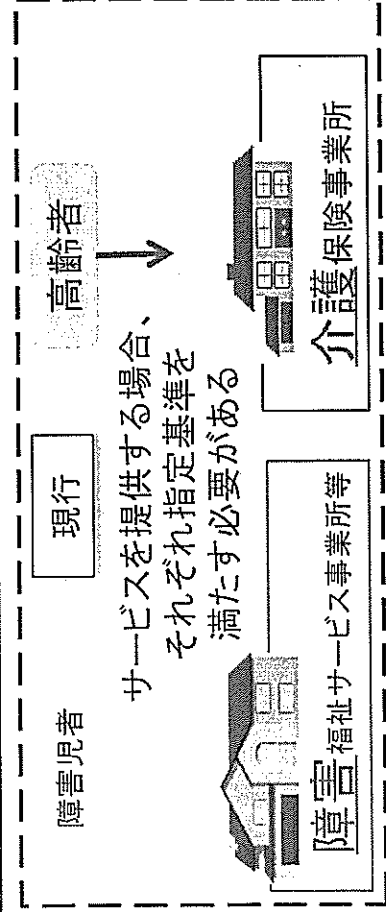 現行
障害児者
高齢者
サービスを提供する場合、
それぞれ指定基準を
満たす必要がある
障害福祉サービス事業所等
介護保険事業所